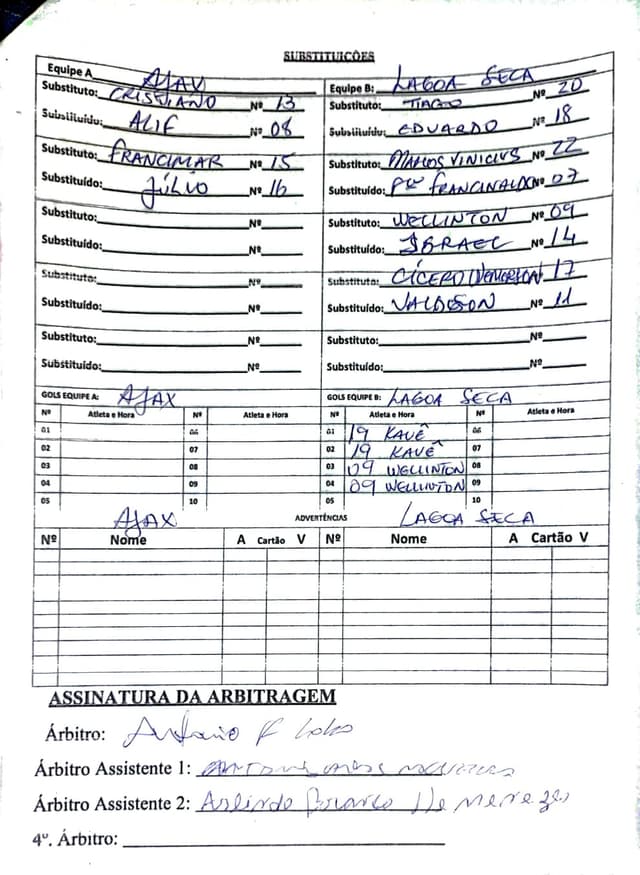 SUBSTITUICÕES
Equipe A AJAX Equipe B: LAGOA SECA
Substituto: CRISTIANO Nº 13 Substituto: TIAGO Nº 20
Substituído: ALIF Nº 08 Substituído: EDUARDO Nº 18
Substituto: FRANCIMAR Nº 15 Substituto: MARCOS VINICIUS Nº 22
Substituído: JÚLIO Nº 16 Substituído: Nº 07
Substituto: Nº Substituto: WELLINTON Nº 09
Substituído: Nº Substituído: ISRAEL Nº 14
Substituto: Nº Substituto: CÍCERO 17
Substituído: Nº Substituído: Nº 11
Substituto: Nº Substituto: Nº
Substituído: Nº Substituído: Nº
GOLS EQUIPE A: AJAX GOLS EQUIPE B: LAGOA SECA
Nº Atleta e Hora Nº Atleta e Hora Nº Atleta e Hora Nº Atleta e Hora
01 06 01 19 KAUÊ 06
02 07 02 19 KAUÊ 07
03 08 03 09 WELLINTON 08
04 09 04 09 WELLINTON 09
05 10 05 10
AJAX ADVERTÊNCIAS LAGOA SECA
Nº Nome A Cartão V Nº Nome A Cartão V
ASSINATURA DA ARBITRAGEM
Árbitro: Antonio F Lobo
Árbitro Assistente 1:
Árbitro Assistente 2: Arlindo De Menezes
4º. Árbitro: